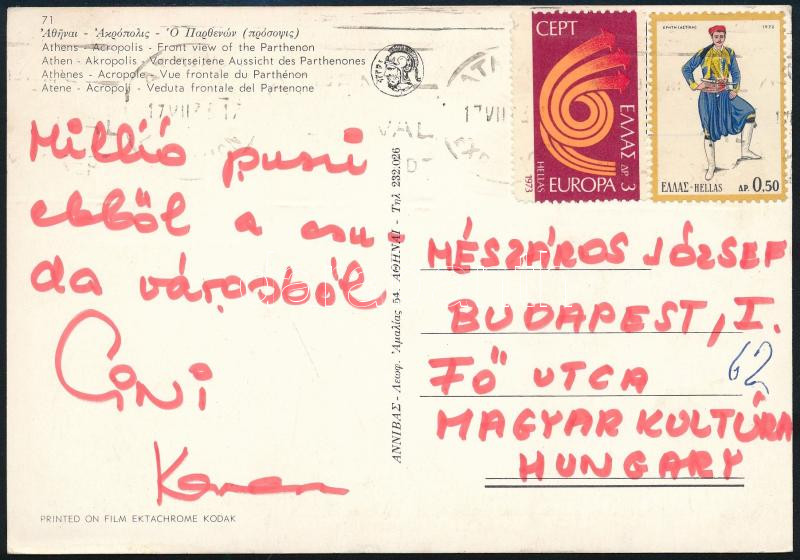 71
Ἀθῆναι - Ἀκρόπολις - Ὁ Παρθενών (πρόσοψις)
Athens - Acropolis - Front view of the Parthenon
Athen - Akropolis - Vorderseitene Aussicht des Parthenones
Athènes - Acropole - Vue frontale du Parthénon
Atene - Acropoli - Veduta frontale del Partenone
17 VII
17 VII
CEPT
ΕΛΛΑΣ ΔΡ 3
HELLAS
EUROPA
1973
ΚΡΗΤΗ (ΑΣΤΙΚΑ) 1972
ΕΛΛΑΣ-HELLAS ΔΡ. 0,50
Millió puszi
ebből a csu-
da városból.
Cini
ΑΝΝΙΒΑΣ - Λεωφ. Ἀμαλίας 54. ΑΘΗΝΑΙ - Τηλ 232.026
MÉSZÁROS JÓZSEF
BUDAPEST, I.
FŐ UTCA 62
MAGYAR KULTÚRA
HUNGARY
PRINTED ON FILM EKTACHROME KODAK